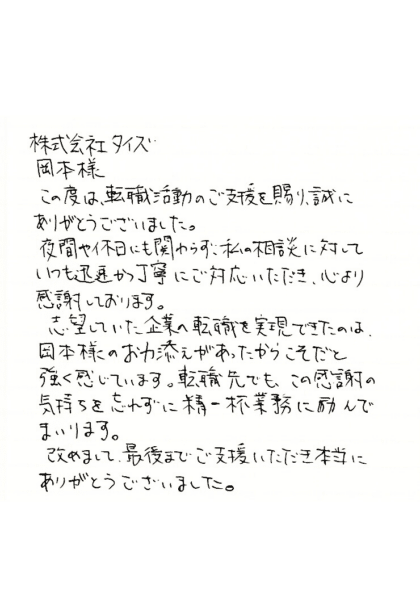 株式会社タイズ
岡本様
この度は、転職活動のご支援を賜り、誠に
ありがとうございました。
夜間や休日にも関わらず、私の相談に対して
いつも迅速かつ丁寧にご対応いただき、心より
感謝しております。
志望していた企業へ転職を実現できたのは、
岡本様のお力添えがあったからこそだと
強く感じています。転職先でも、この感謝の
気持ちを忘れずに精一杯業務に励んで
まいります。
改めまして、最後までご支援いただき本当に
ありがとうございました。